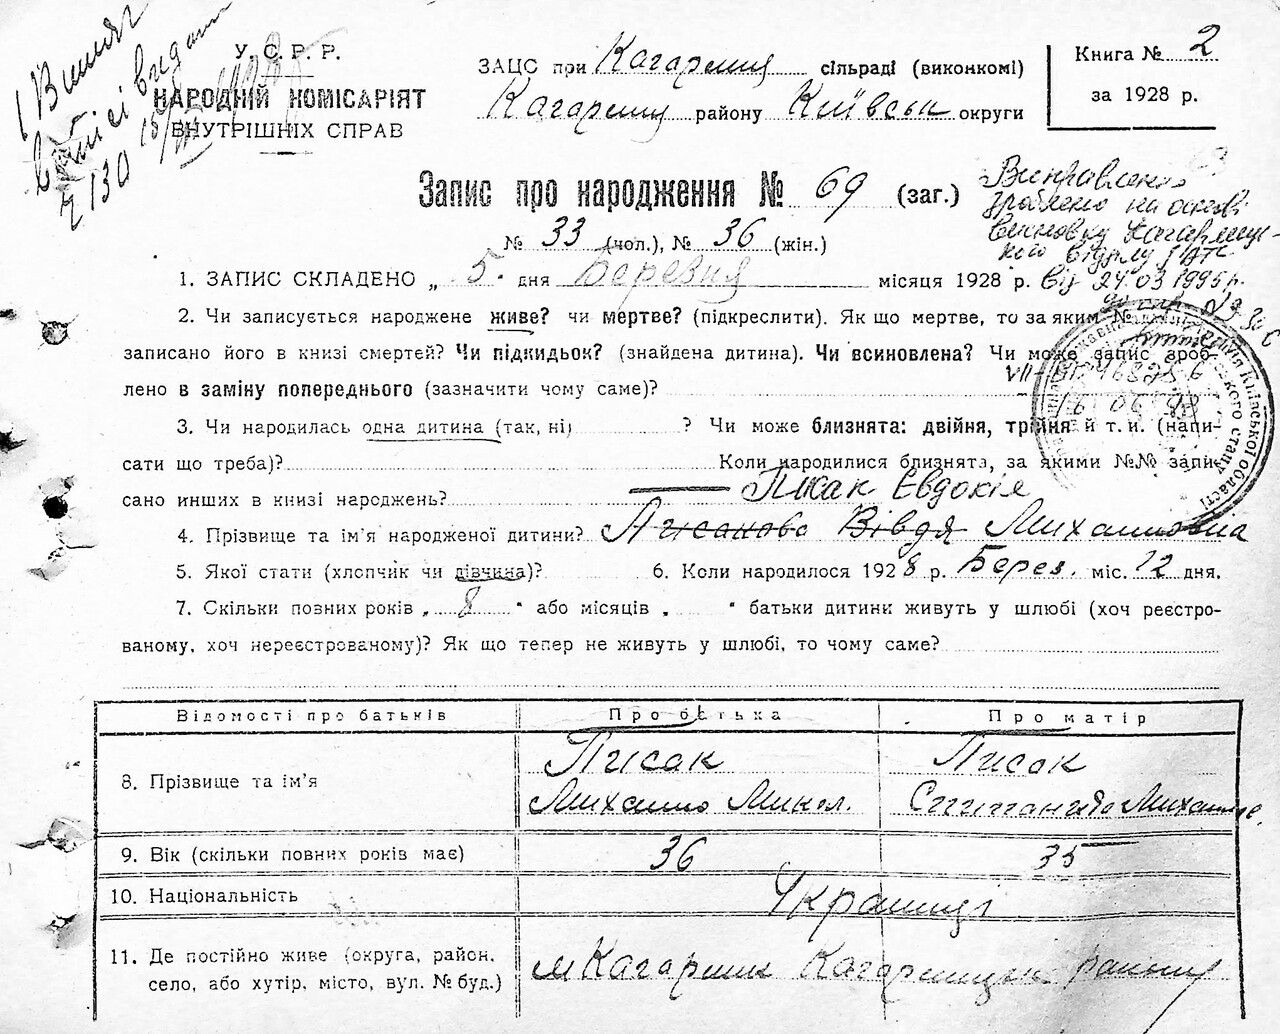 У. С. Р. Р.
НАРОДНІЙ КОМІСАРІЯТ
ВНУТРІШНІХ СПРАВ
ЗАЦС при Кагарлиц. сільраді (виконкомі)
Кагарлиц району Київськ округи
Книга № 2
за 1928 р.
Запис про народження № 69 (заг.)
№ 33 (чол.), № 36 (жін.)
Виправлення
зроблено на основі
висновку Кагарлиць-
кого відділу ЗАГС
від 24.03 1995 р.
1. ЗАПИС СКЛАДЕНО „ 5 " дня Березня місяця 1928 р.
2. Чи записується народжене живе? чи мертве? (підкреслити). Як що мертве, то за яким №
записано його в книзі смертей? Чи підкидьок? (знайдена дитина). Чи всиновлена? Чи може запис зроб-
лено в заміну попереднього (зазначити чому саме)?
3. Чи народилась одна дитина (так, ні) ? Чи може близнята: двійня, трійня й т. и. (напи-
сати що треба)? Коли народилися близнята, за якими №№ запи-
сано инших в книзі народжень?
Писак Евдокія
4. Прізвище та ім'я народженої дитини? Писакова Вівдя Михайлівна
5. Якої стати (хлопчик чи дівчина)? 6. Коли народилося 1928 р. Берез. міс. 12 дня.
7. Скільки повних років „ 8 " або місяців „ " батьки дитини живуть у шлюбі (хоч реєстро-
ваному, хоч нереєстрованому)? Як що тепер не живуть у шлюбі, то чому саме?
Відомості про батьків Про батька Про матір
8. Прізвище та ім'я
Писак Писак
Михайло Микол.
9. Вік (скільки повних років має) 36 35
10. Національність Українці
11. Де постійно живе (округа, район,
село, або хутір, місто, вул. № буд.)
м Кагарлик Кагарлицьк району